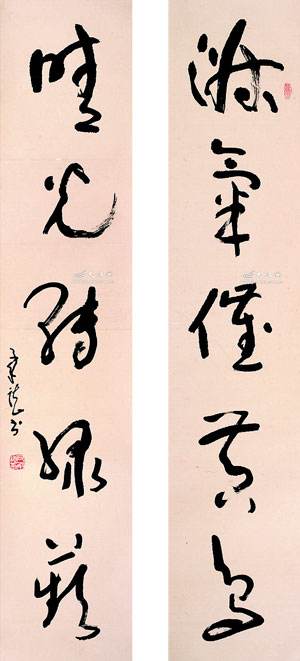 淑氣催黄鳥
晴光轉緑蘋